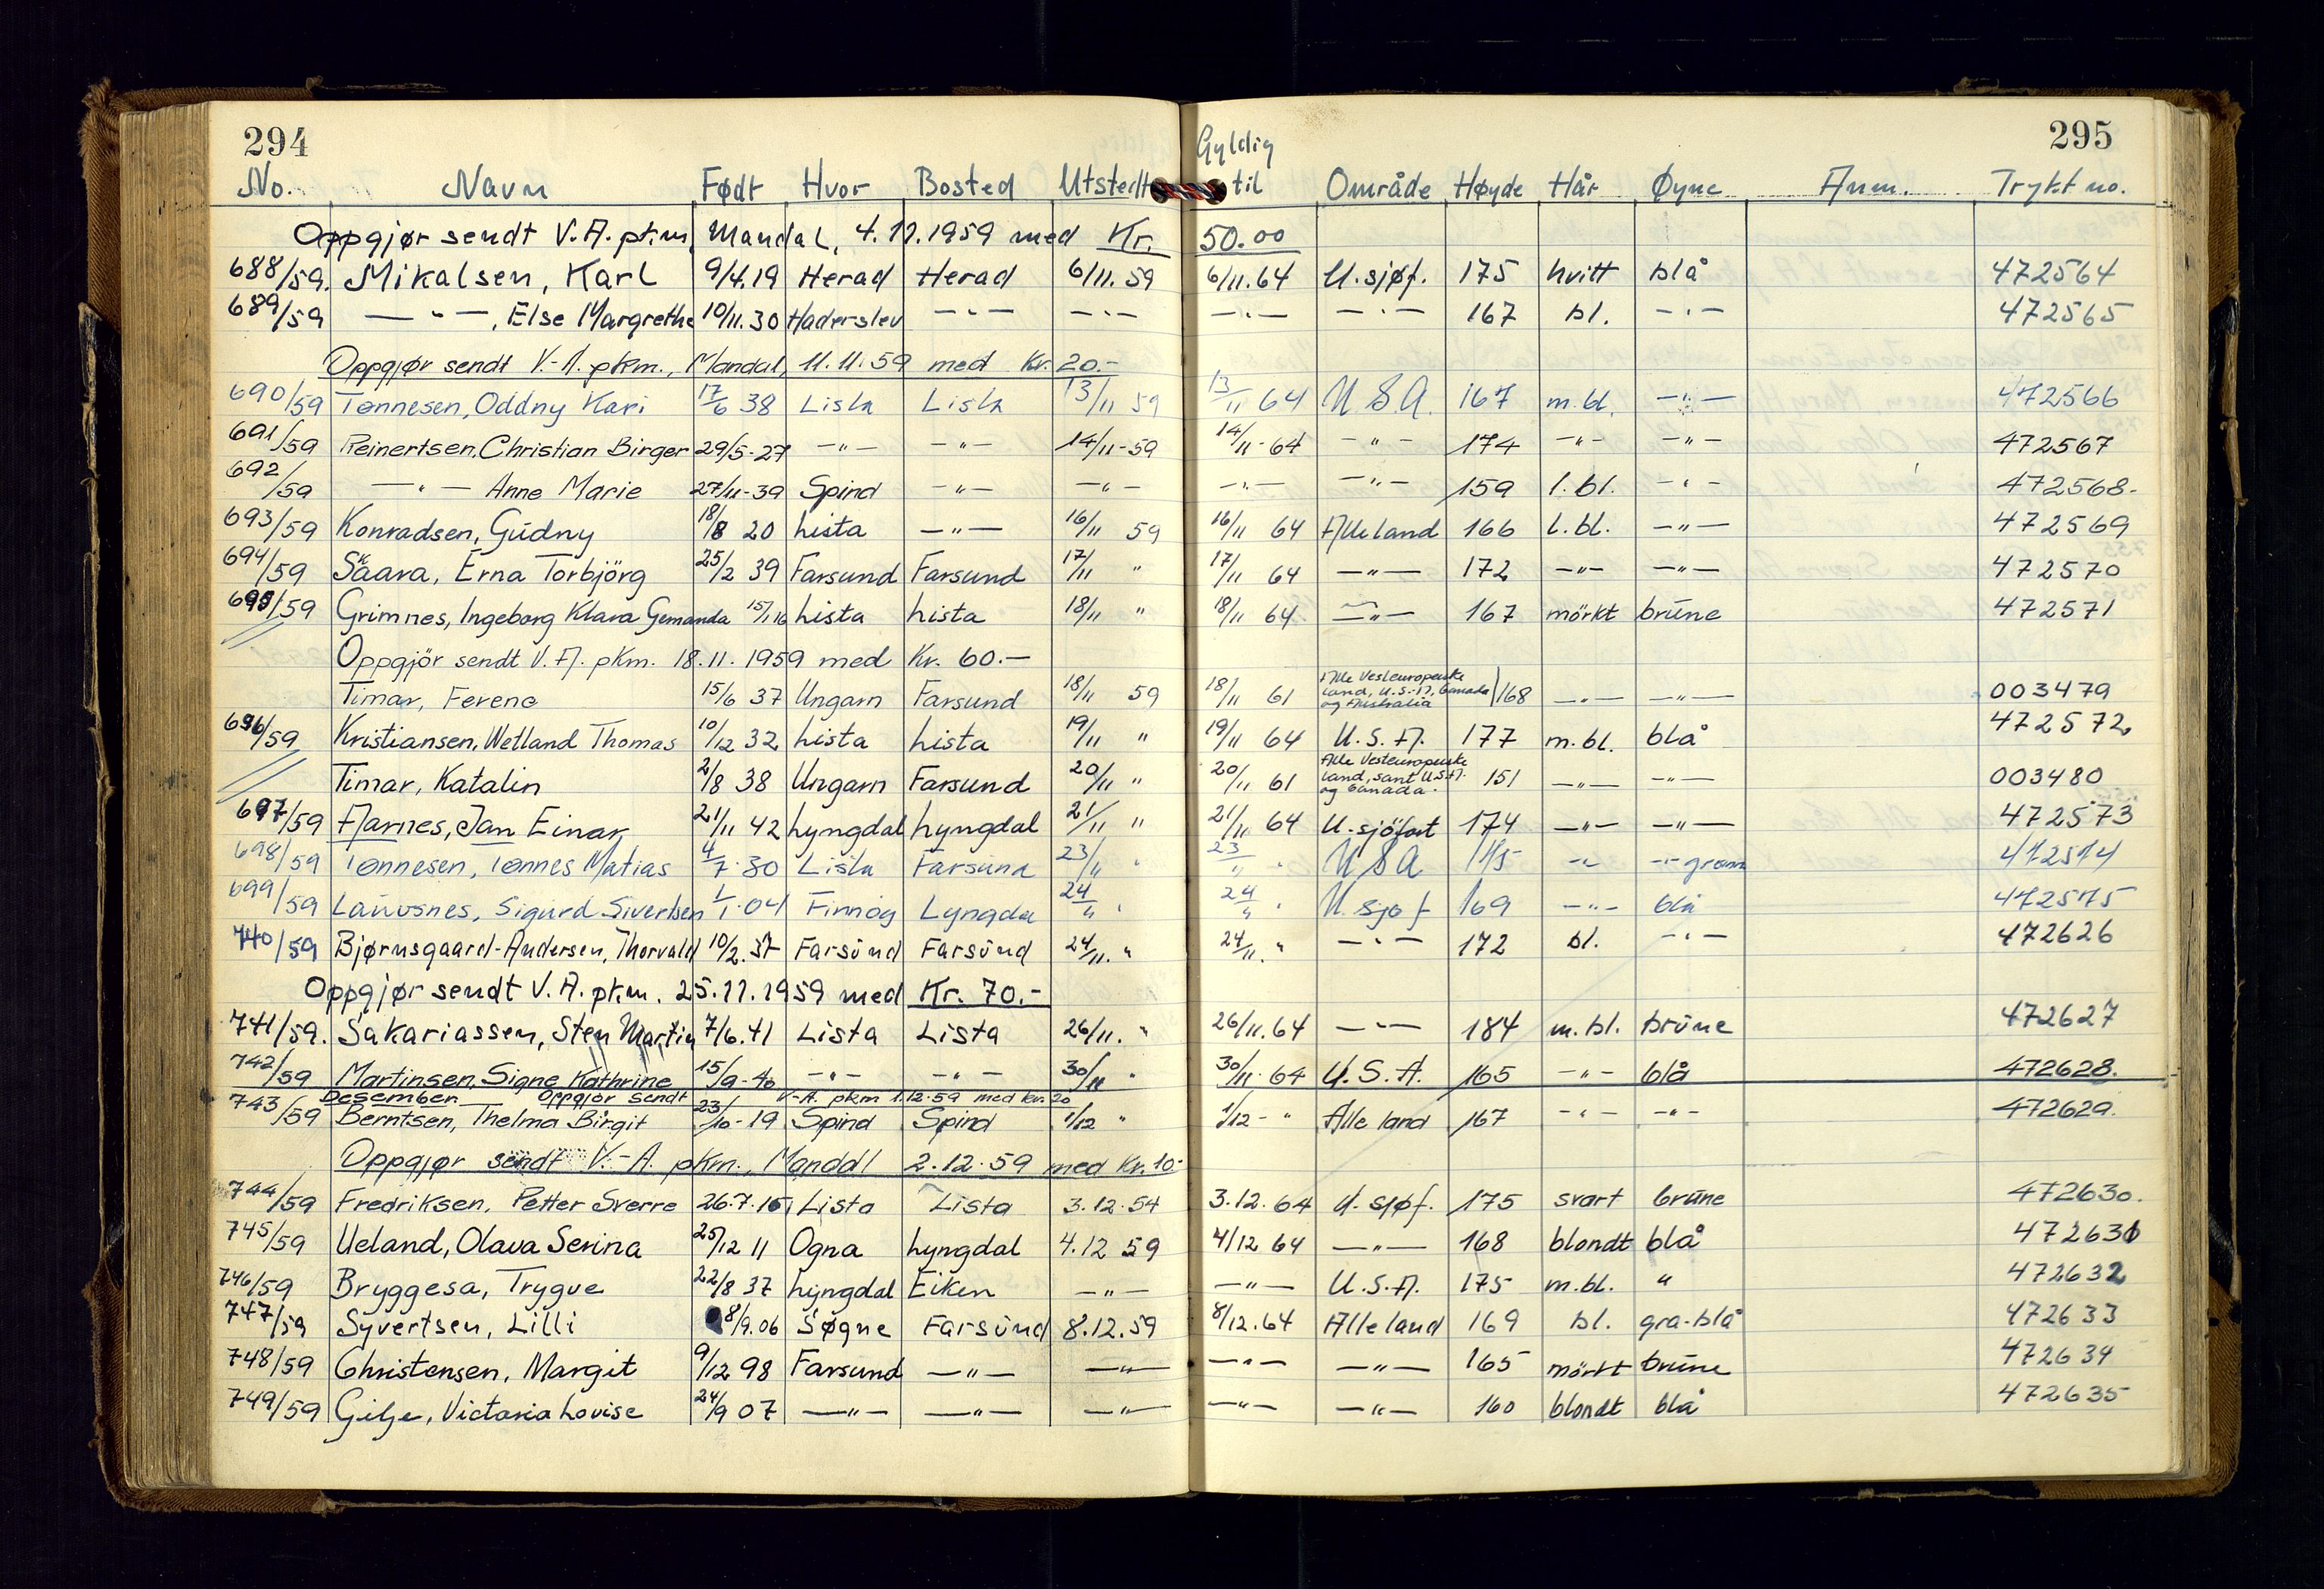 294
295
No. Navn Født Hvor Bosted Utstedt Gyldig til Område Høyde Hår Øyne Anm. Trykt no.
Oppgjør sendt V.A. pkm, Mandal, 4.11.1959 med Kr. 50.00
688/59. Mikalsen, Karl 9/4.19 Herad Herad 6/11.59 6/11.64 U.sjøf. 175 hvitt blå 472564
689/59 — " —, Else Margrethe 10/11.30 Haderslev — " — — " — — " — — " — 167 bl. — " — 472565
Oppgjør sendt V.-A. pkm., Mandal, 11.11.59 med Kr. 20.-
690/59 Tønnesen, Oddny Kari 17/6 38 Lista Lista 13/11 59 13/11 64 U S A. 167 m.bl. — " — 472566
691/59 Reinertsen, Christian Birger 29/5-27 — " — — " — 14/11-59 14/11-64 — " — 174 — " — — " — 472567
692/59 — " — Anne Marie 27/11-39 Spind — " — — " — — " — — " — 159 l.bl. — " — 472568.
693/59 Konradsen, Gudny 18/8 20 Lista — " — 16/11 59 16/11 64 Alle land 166 l.bl. — " — 472569
694/59 Skaara, Erna Torbjörg 25/2 39 Farsund Farsund 17/11 " 17/11 64 — " — 172 — " — — " — 472570
695/59 Grimnes, Ingeborg Klara Gemanda 15/1 16 Lista Lista 18/11 " 18/11 64 — " — 167 mörkt brune 472571
Oppgjör sendt V.A. pkm. 18.11.1959 med Kr. 60.—
Timar, Ferenc 15/6 37 Ungarn Farsund 18/11 59 18/11 61 Alle Vesteuropeiske land, U.S.A, Canada og Australia 168 — " — — " — 003479
696/59 Kristiansen, Wetland Thomas 10/12 32 Lista Lista 19/11 " 19/11 64 U.S.A. 177 m.bl. blå 472572
Timar, Katalin 2/8 38 Ungarn Farsund 20/11 " 20/11 61 Alle Vesteuropeiske land, samt U.S.A. og Canada. 151 — " — — " — 003480
697/59 Aarnes, Jan Einar 21/11 42 Lyngdal Lyngdal 21/11 " 21/11 64 U.sjöfart 174 — " — — " — 472573
698/59 Tønnesen, Tønnes Matias 4/7.30 Lista Farsund 23/11 " 23/11 " U S A 175 — " — — " — 472574
699/59 Lauvsnes, Sigurd Sivertsen 1/1.04 Lyngdal 24/11 " 24/11 " U.sjøf 169 — " — blå 472575
740/59 Bjørnsgaard-Andersen, Thorvald 10/2.37 Farsund Farsund 24/11. " 24/11. " — " — 172 bl. — " — 472626
Oppgjør sendt V.A. pkm. 25.11.1959 med Kr. 70.-
741/59. Sakariassen, Sten Martin 7/6.41 Lista Lista 26/11. " 26/11.64 — " — 184 m.bl. brune 472627
742/59 Martinsen, Signe Kathrine 15/9-40 — " — — " — 30/11 " 30/11-64 U.S.A. 165 — " — blå 472628.
Desember. Oppgjør sendt V-A. pkm 1.12.59 med kr. 20
743/59 Berntsen, Thelma Birgit 23/10-19 Spind Spind 1/12 " 1/12- " Alle land 167 — " — — " — 472629.
Oppgjør sendt V.-A. pkm., Mandal 2.12.59 med Kr. 10.-
744/59 Fredriksen, Petter Sverre 26.7.16 Lista Lista 3.12.54 3.12.64 U.sjøf. 175 svart brune 472630.
745/59 Ueland, Olava Serina 25/12 11 Ogna Lyngdal 4.12 59 4/12 64 — " — 168 blondt blå 472631
746/59 Bryggeså, Trygve 22/8 37 Lyngdal Eiken — " — — " — U.S.A. 175 m.bl. " 472632
747/59 Syvertsen, Lilli 8/9.06 Søgne Farsund 8.12.59 8/12.64 Alle land 169 bl. grå-blå 472633
748/59 Christensen, Margit 9/12 98 Farsund — " — — " — — " — — " — 165 mörkt brune 472634
749/59 Gilje, Victoria Lovise 24/9 07 — " — — " — — " — — " — — " — 160 blondt blå 472635